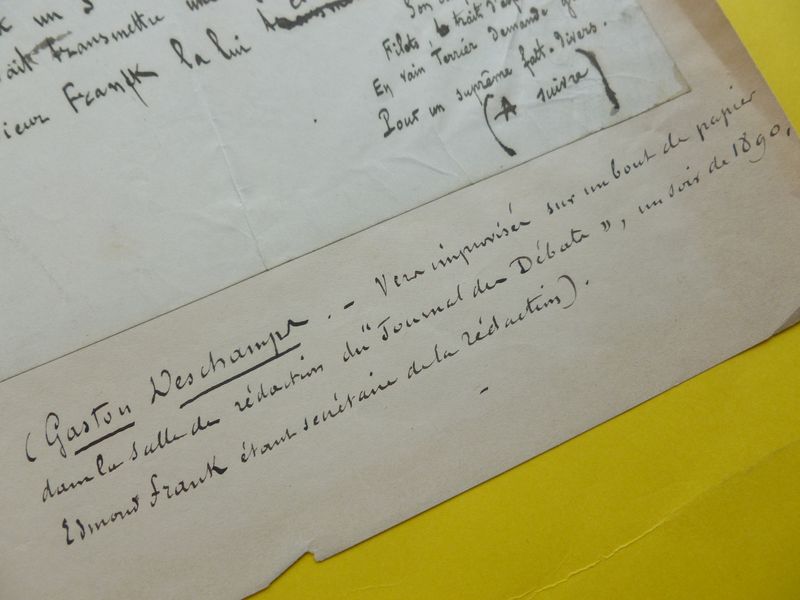 un
Son
ait transmettre une
Filots, le trait d'es
ieur Franck la lui
En vain Terrier demande
Pour un suprême fait-divers.
(A suivre)
(Gaston Deschamps. - Vers improvisés sur un bout de papier
dans la salle de rédaction du "Journal des Débats", un soir de 1890,
Edmond Frank étant secrétaire de la rédaction).